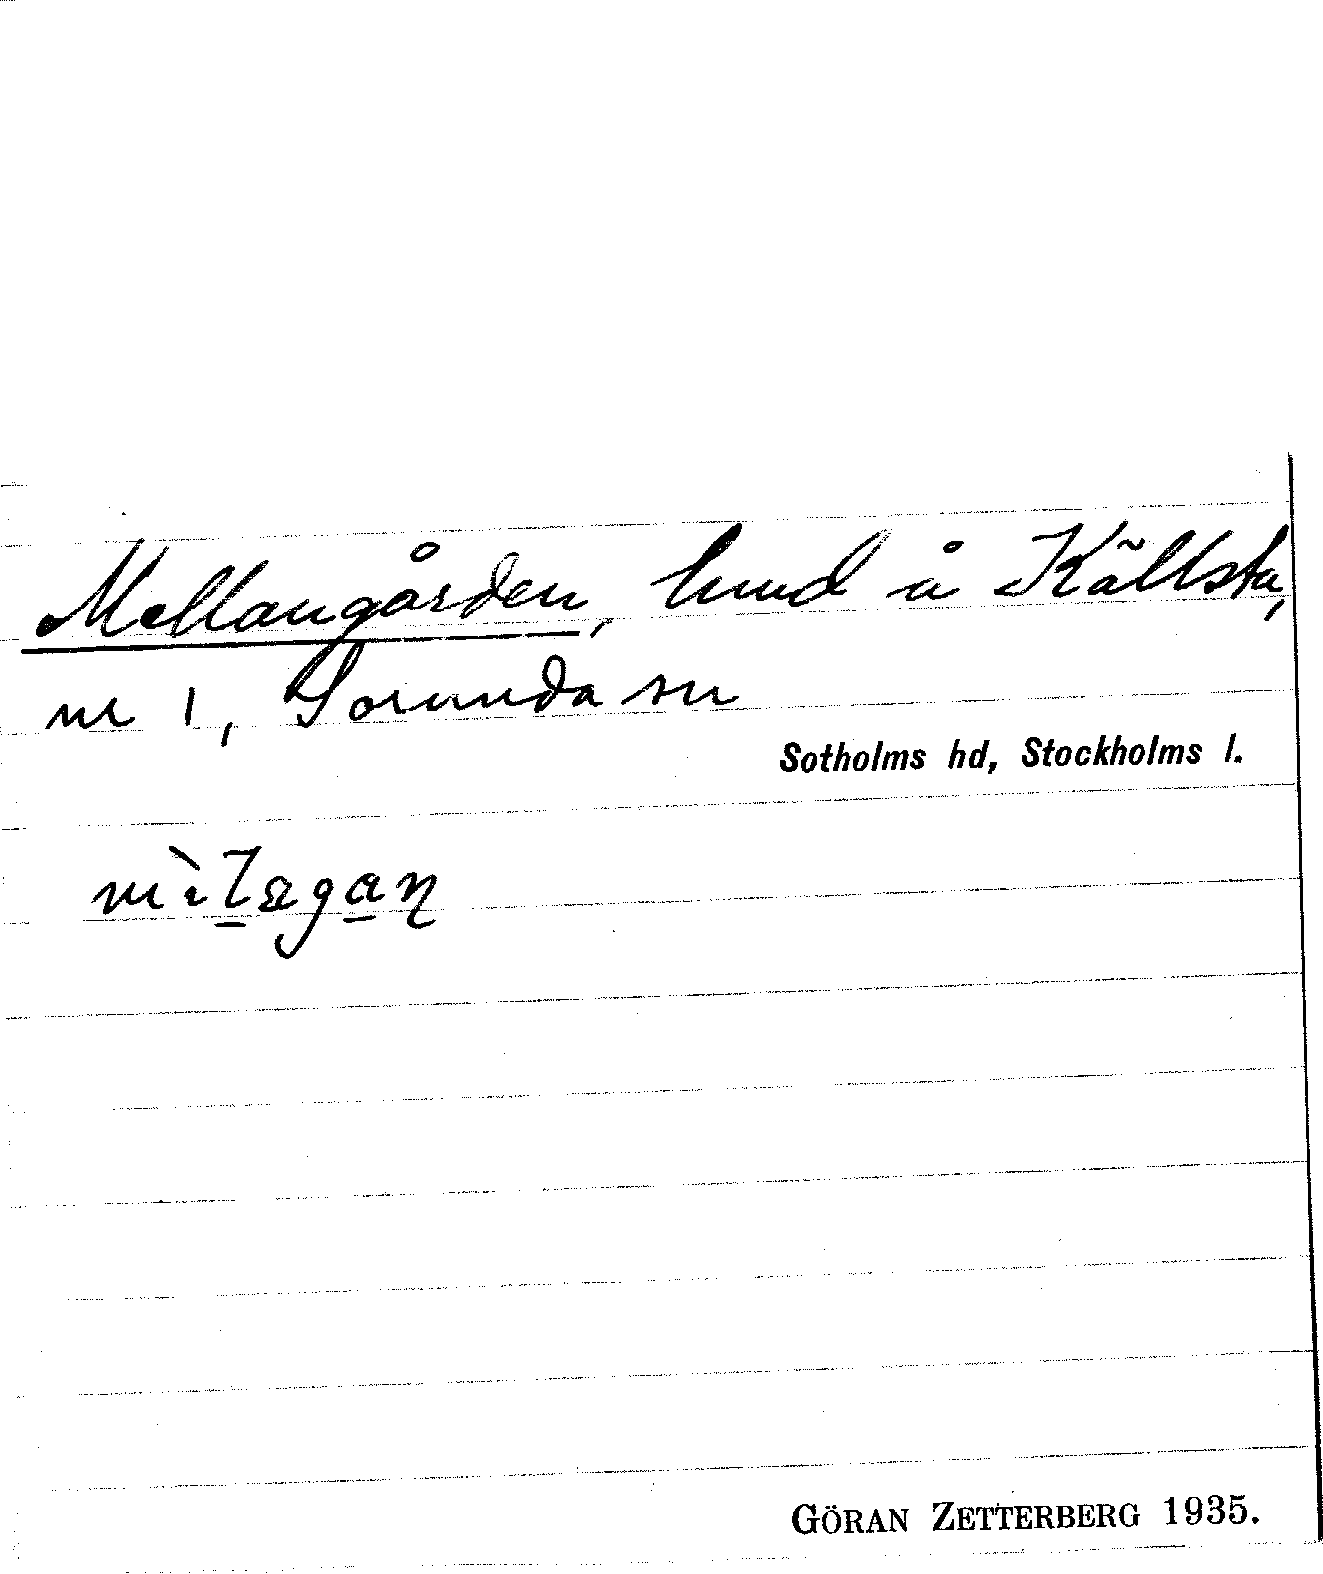 Mellangården, hmd å Källsta,
nr 1, Sorunda sn
Sotholms hd, Stockholms l.
GÖRAN ZETTERBERG 1935.